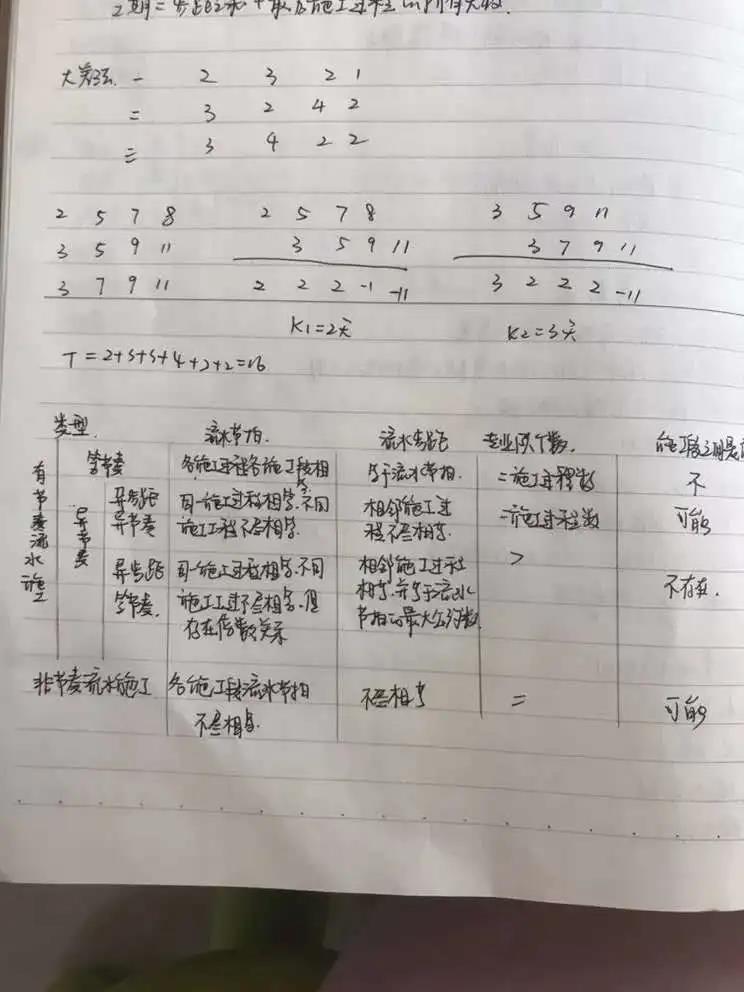 工期=步距之和+最后施工过程的所有天数.
大差法. 一 2 3 2 1
二 3 2 4 2
三 3 4 2 2
2 5 7 8
3 5 9 11
3 7 9 11
2 5 7 8
3 5 9 11
2 2 2 -1 -11
K1=2天
3 5 9 11
3 7 9 11
3 2 2 2 -11
K2=3天
T=2+3+3+4+2+2=16
类型. 流水节拍. 流水步距 专业队个数. 施工段之间是
有节奏流水施工
等节奏 各施工过程各施工段相等 等于流水节拍. =施工过程数 不
异节奏
异步距异节奏 同一施工过程相等.不同施工工程不尽相等. 相邻施工过程不尽相等. =施工过程数 可能
异步距等节奏. 同一施工过程相等.不同施工工过不尽相等.但存在倍数关系 相邻施工过程相等.并等于流水节拍的最大公约数 > 不存在.
非节奏流水施工 各施工段流水节拍不尽相等. 不尽相等 = 可能